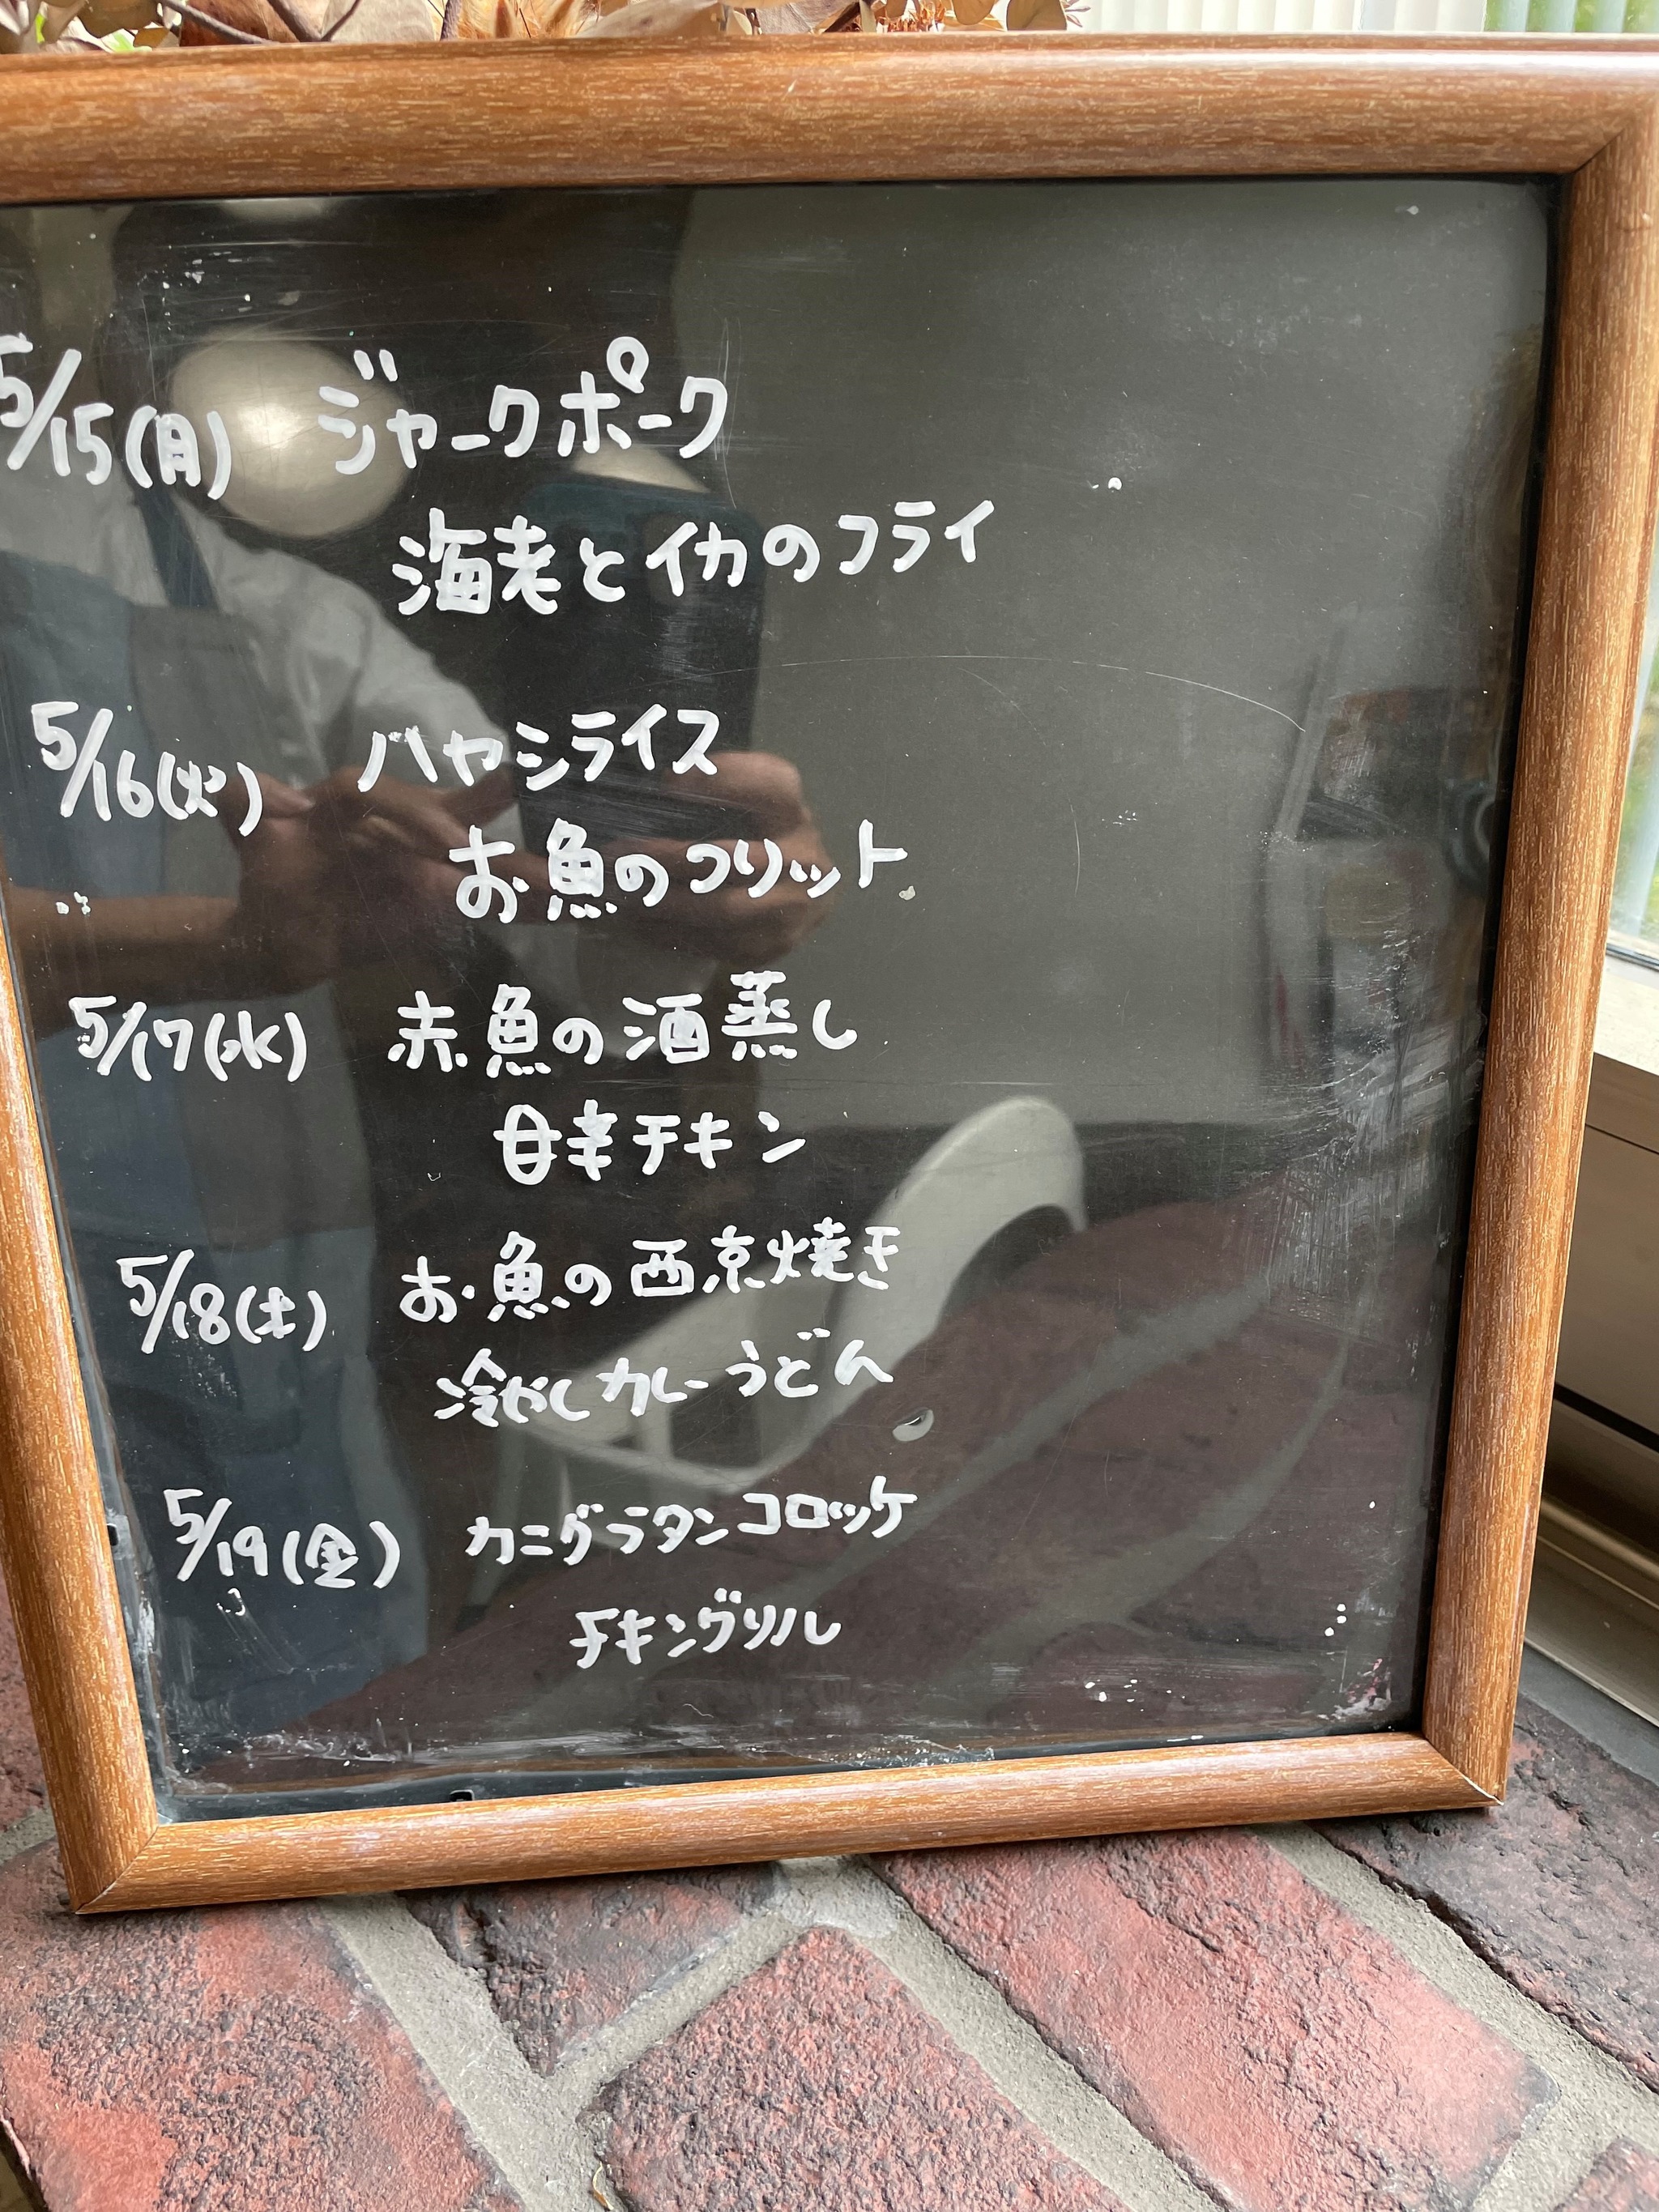 5/15(月) ジャークポーク
海老とイカのフライ
5/16(火) ハヤシライス
お魚のフリット
5/17(水) 赤魚の酒蒸し
甘辛チキン
5/18(木) お魚の西京焼き
冷やしカレーうどん
5/19(金) カニグラタンコロッケ
チキングリル